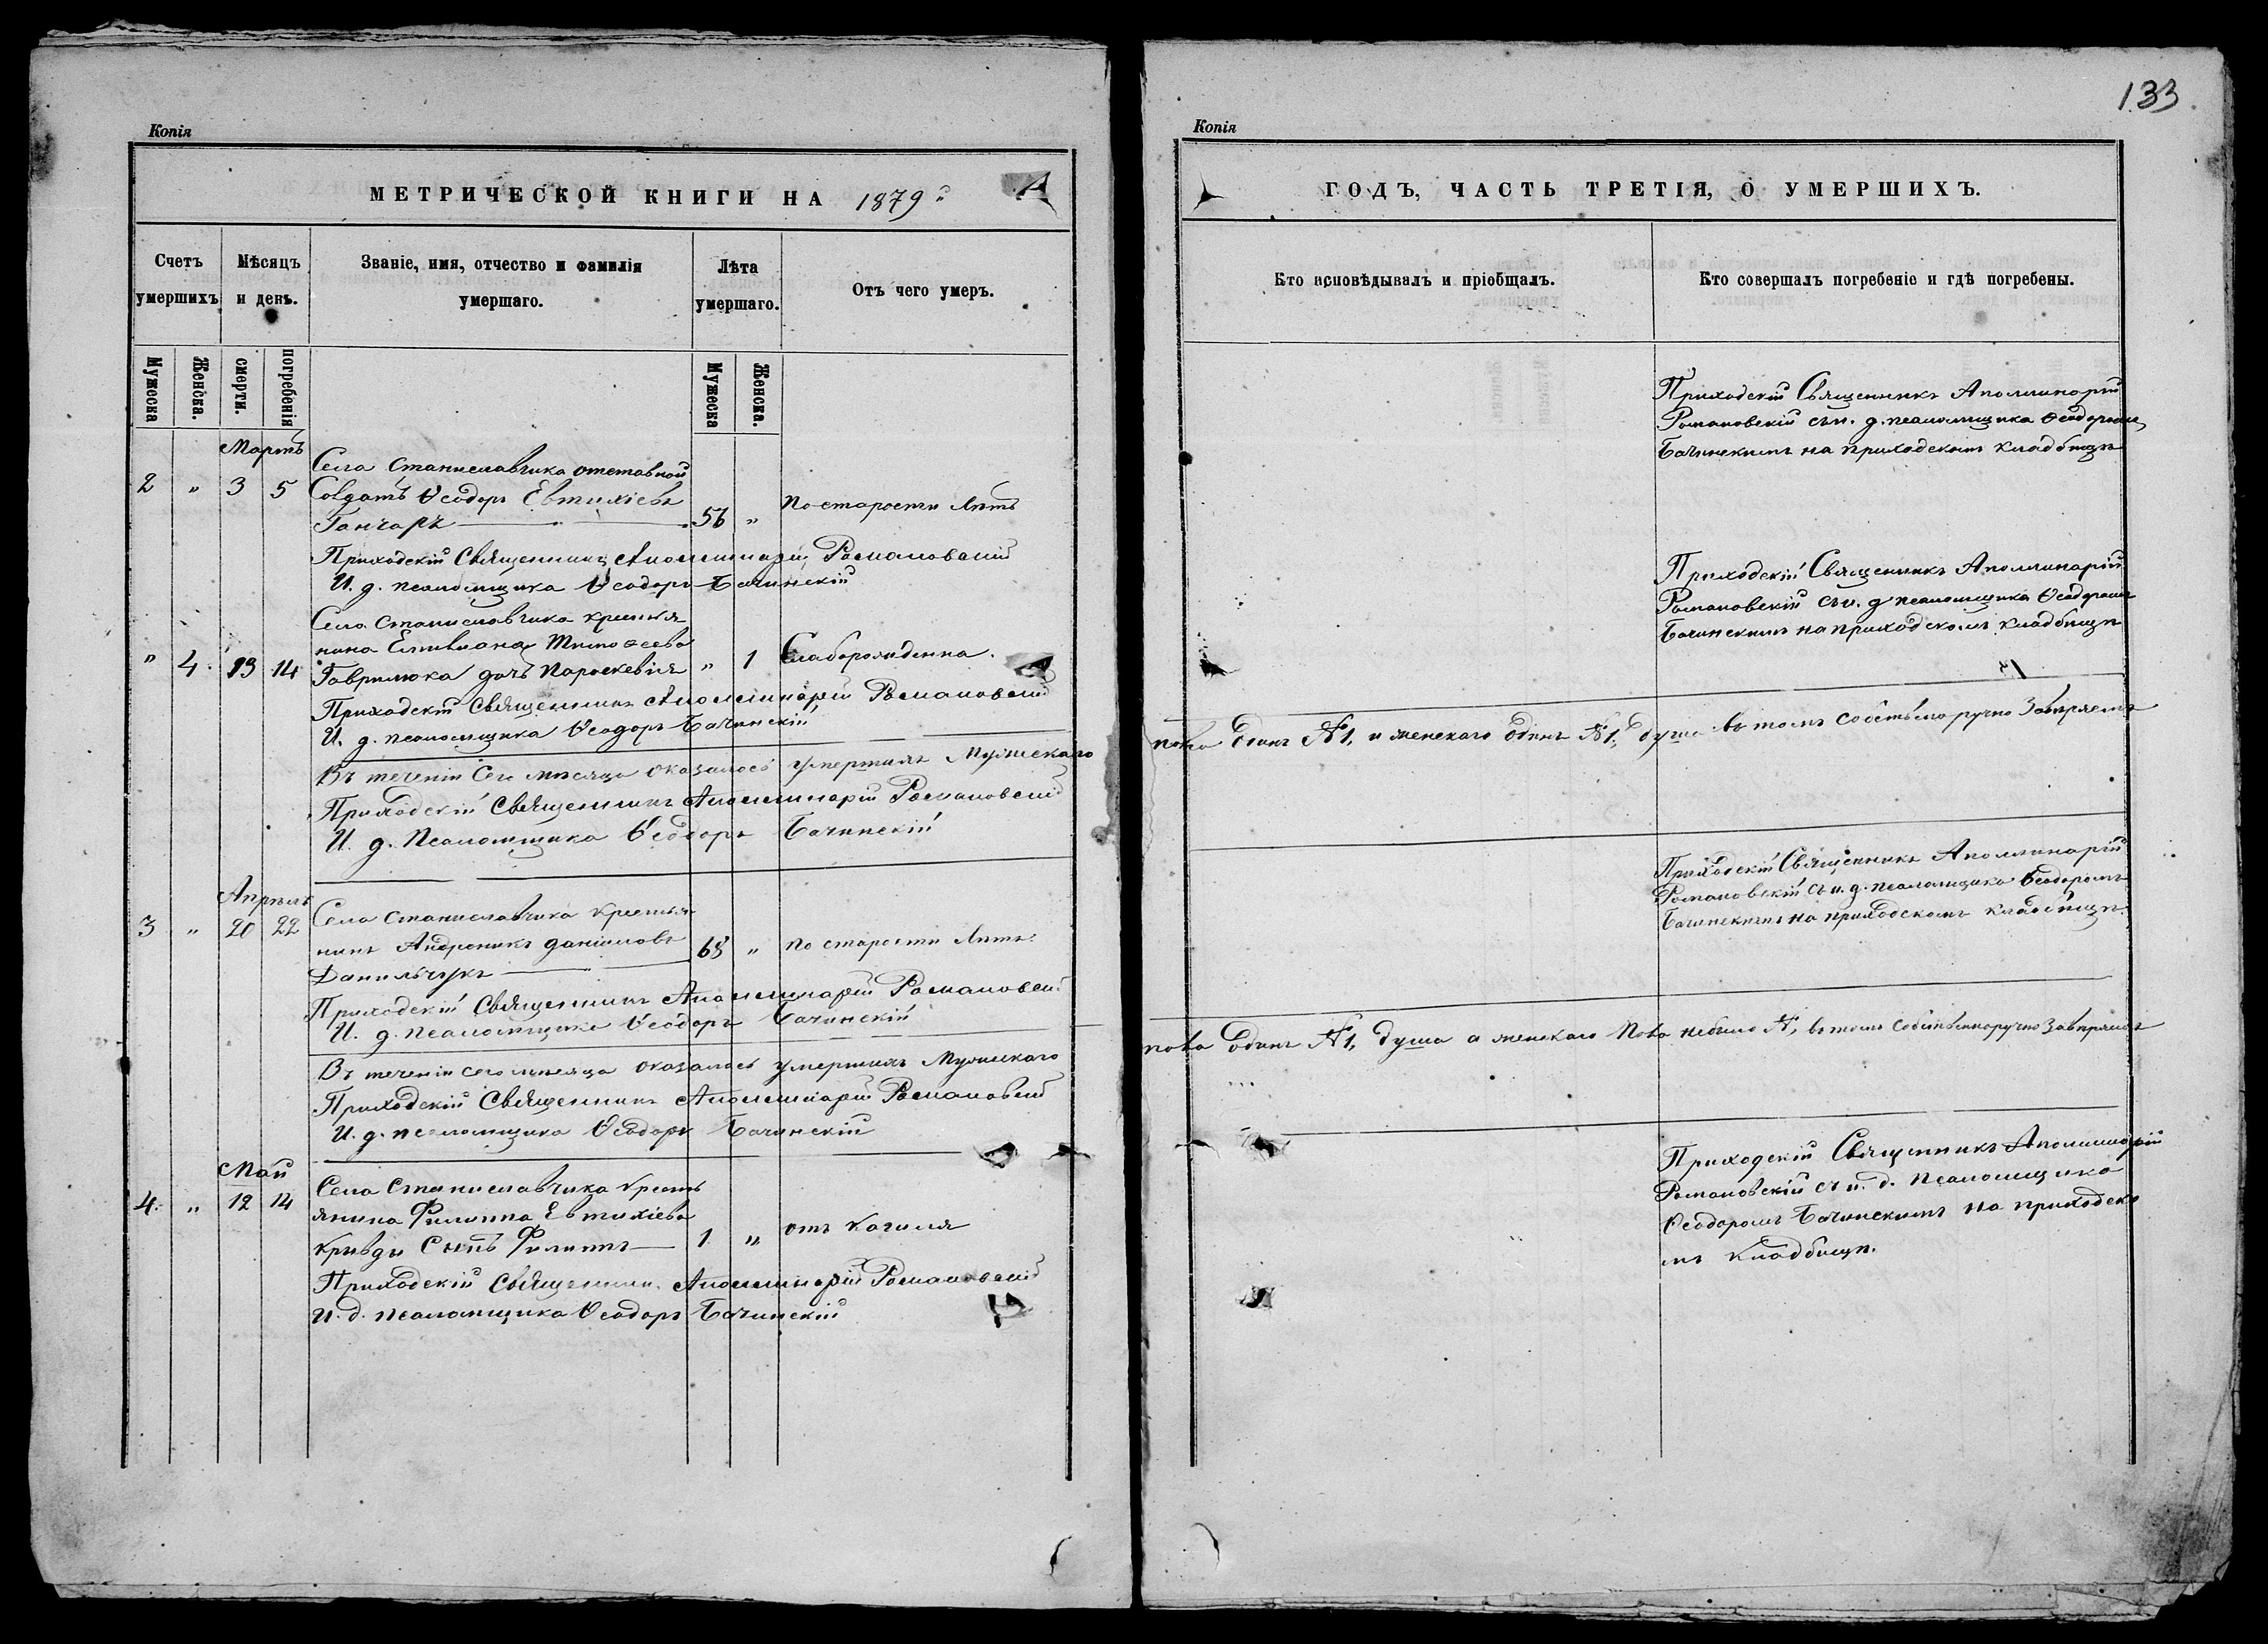 Копія
МЕТРИЧЕСКОЙ КНИГИ НА 1879й
Счетъ умершихъ
Мѣсяцъ и день.
Званіе, имя, отчество и фамилія умершаго.
Лѣта умершаго.
Отъ чего умеръ.
Мужеска
Женска.
смерти.
погребенія
Мужеска
Женска.
Мартъ
Села Станиславчика отставной
2 " 3 5 Солдатъ Ѳеодоръ Евтихіевъ
Ганчаръ 56 " По старости лѣтъ
Приходскій Священникъ Аполлинарій Романовскій
И. д. псаломщика Ѳеодоръ Бачинскій
Села Станиславчика крестья
нина Тимоѳеева
" 4. 13 14 Гаврилюка дочь Параскевія " 1 Слаборожденна.
Приходскій Священникъ Аполлинарій Романовскій
И. д. псаломщика Ѳеодоръ Бачинскій
Въ теченіи сего мѣсяца оказалось умершихъ Мужескаго
Приходскій Священникъ Аполлинарій Романовскій
И. д. Псаломщика Ѳеодоръ Бачинскій
Апрѣль
3 " 20 22 Села Станиславчика крестья
нинъ Андроникъ Даніиловъ 68 " по старости лѣтъ.
Данильчукъ
Приходскій Священникъ Аполлинарій Романовскій
И. д. псаломщика Ѳеодоръ Бачинскій
Въ теченіи сего мѣсяца оказалось умершихъ Мужескаго
Приходскій Священникъ Аполлинарій Романовскій
И. д. псаломщика Ѳеодоръ Бачинскій
Май
4. " 12 14 Села Станиславчика Крестъ
янина Филиппа Евтихіева
Кривды Сынъ Филиппъ 1 " отъ Кашля
Приходскій Священникъ Аполлинарій Романовскій
И. д. псаломщика Ѳеодоръ Бачинскій
133
Копія
ГОДЪ, ЧАСТЬ ТРЕТІЯ, О УМЕРШИХЪ.
Кто исповѣдывалъ и пріобщалъ.
Кто совершалъ погребеніе и гдѣ погребены.
Приходскій Священникъ Аполлинарій
Романовскій съ и. д. псаломщика Ѳеодоромъ
Бачинскимъ на приходскомъ кладбищѣ
Приходскій Священникъ Аполлинарій
Романовскій съ и. д псаломщика Ѳеодоромъ
Бачинскимъ на приходскомъ кладбищѣ
пола Одинъ № 1, и женскаго Одинъ № 1, душа въ томъ собственоручно Завѣряемъ
Приходскій Священникъ Аполлинарій
Романовскій съ и. д. псаломщика Ѳеодоромъ
Бачинскимъ на приходскомъ кладбищѣ.
пола Одинъ № 1, душа а женскаго Пола небыло №, въ томъ собственноручно Завѣряемъ
Приходскій Священникъ Аполлинарій
Романовскій съ и. д. Псаломщика
Ѳеодоромъ Бачинскимъ на приходско
мъ Кладбищѣ.